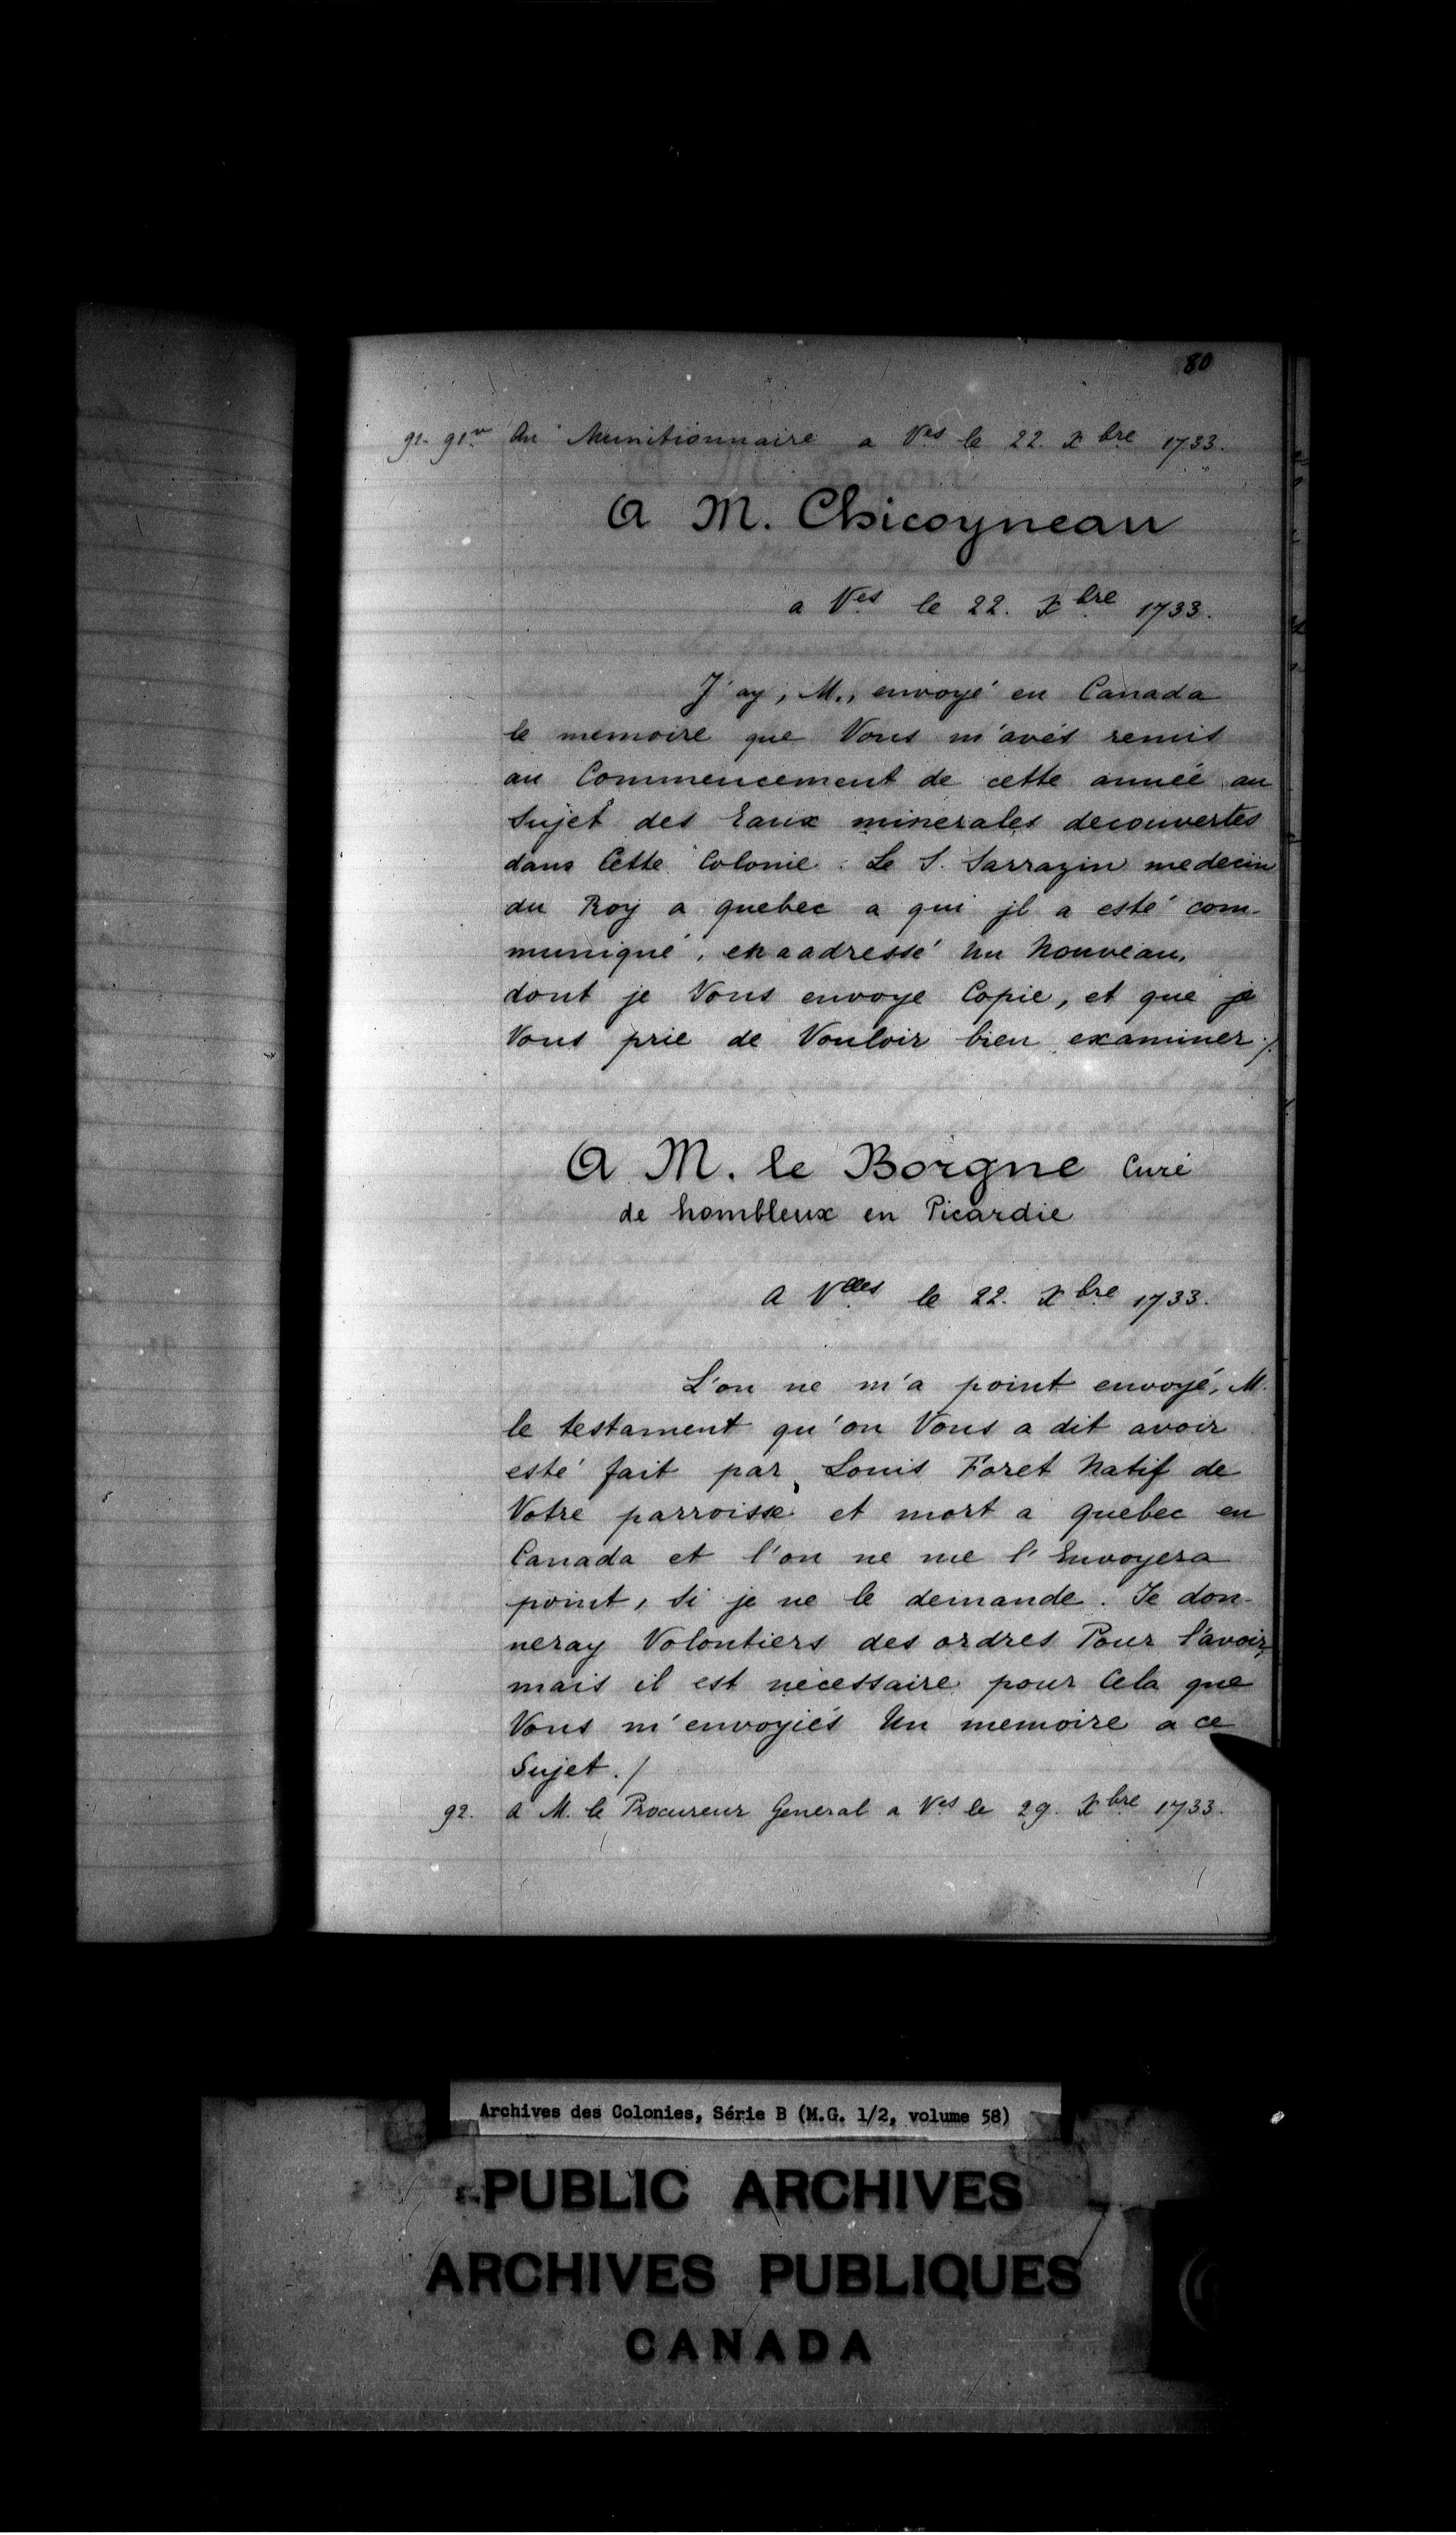 80
91-91v Au Munitionnaire a Ves le 22. Xbre 1733.
A M. Chicoyneau
a Ves le 22. Xbre 1733.
J'ay, M., envoyé en Canada
le memoire que Vous m'avés remis
au Commencement de cette année au
Sujet des Eaux minerales decouvertes
dans Cette Colonie. Le S. Sarrazin medecin
du Roy a quebec a qui jl a esté com-
muniqué, en a adressé Un Nouveau,
dont je Vous envoye Copie, et que je
Vous prie de Vouloir bien examiner ./.
A M. le Borgne Curé
de hombleux en Picardie
A Vlles le 22. Xbre 1733.
L'on ne m'a point envoyé, M.
le testament qu'on Vous a dit avoir
esté fait par Louis Foret Natif de
Votre parroisse et mort a quebec en
Canada et l'on ne me l'Envoyera
point, Si je ne le demande. Je don-
neray Volontiers des ordres Pour l'avoir,
mais il est nécessaire pour Cela que
Vous m'envoyiés Un memoire a ce
Sujet ./
92. A M. le Procureur General a Ves le 29. Xbre 1733.
Archives des Colonies, Série B (M.G. 1/2, volume 58)
PUBLIC ARCHIVES
ARCHIVES PUBLIQUES
CANADA